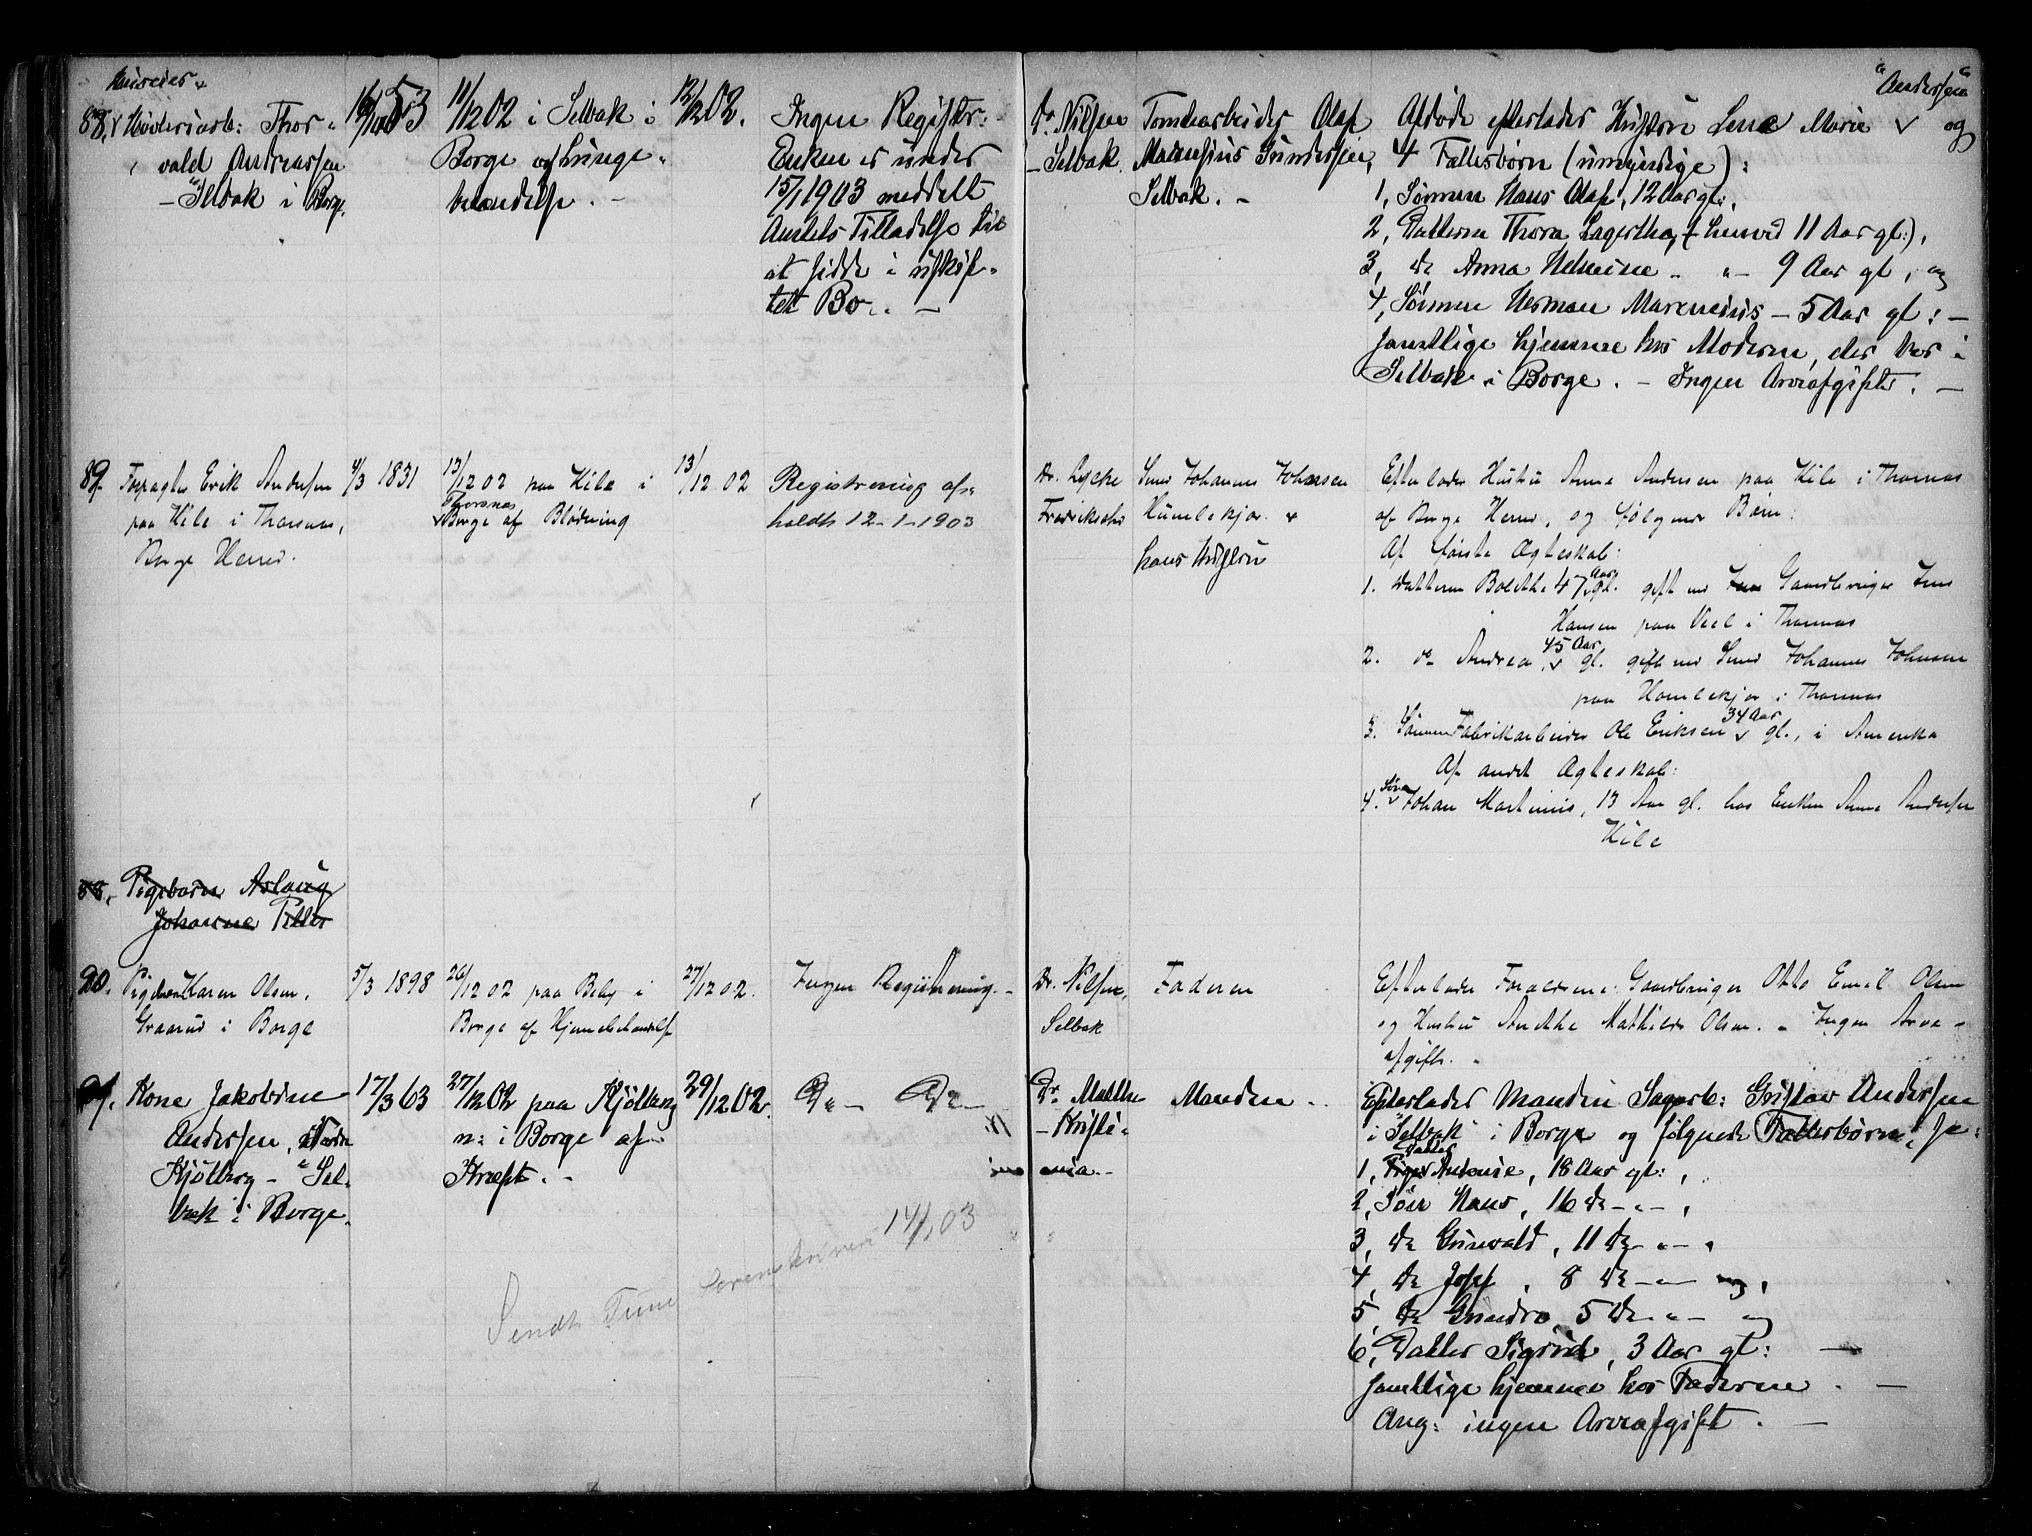 88.
Thor-
vald Andreassen
- "Selbak i Borge.
11/12 02 i Selbak i
Borge af Lunge-
betændelse. -
12/12 02.
Ingen Registr:
Enken er under
15/1 1903 meddelt
Amtets Tilladelse til
at sidde i uskif-
tet Bo. . -
Dr. Nilsen
- Selbak.
Tomtearbeider Olaf
Marensius Gundersen,
Selbak. -
"Andersen"
Afdøde efterlader Hustru Lene Marie v og
4 Fællesbørn (umyndige):
1, Sønnen Hans Olaf, 12 Aar gl:,
2, Datteren Thora Lagertha, 11 Aar gl:),
3, do Anna - " - 9 Aar gl, og
4, Sønnen Herman Marensius - 5 Aar gl: -
samtlige hjemme hos Moderen, der bor i
Selbak i Borge. - Ingen Arveafgift. -
89.
Forpagter Erik Andersen
paa Kile i Thorsnæs,
Borge Herred.
4/3 1831
13/12 02 paa Kile i
Thorsnæs
Borge af Blødning
13/12 02
Registrering af-
holdt 12-1-1903
Dr. Lycke
Fredrikstad
Smed Johannes Johansen
Humlekjær
hans Hustru
Efterlader Hustru Anne Andersen paa Kile i Thorsnæs
af Borge Herred, og følgende Børn:
Af første Ægteskab:
1. Datteren Bolethe 47 Aar gl. gift med Gaardbruger Jens
Hansen paa i Thorsnæs
2. do Andrea, 45 Aar gl. gift med Smed Johannes Johansen
paa Humlekjær i Thorsnæs
3. Sønnen Fabrikarbeider Ole Eriksen 34 Aar gl., i Amerika
Af andet Ægteskab:
4. Søn Johan Martinius, 13 Aar gl. hos Enken Anne Andersen
Kile
88. Pigebarn Aslaug
Johanne
90. Pigebarn Karen Olsen,
Graarud i Borge
5/3 1898
26/12 02 paa Beby i
Borge af Hjernebetændelse
27/12 02.
Ingen Registrering. -
Dr. Nilsen,
Selbak
Faderen
Efterlader Forældrene: Gaardbruger Otto Emil Olsen
og Hustru Anethe Mathilde Olsen. - Ingen Arve-
afgift. -
91. Kone Jakobine
Andersen,
Kjølberg - "Sel-
bak i Borge.
17/3 63
27/12 02 paa Kjølberg
n: i Borge af
Kræft. -
29/12 02.
Do - Do -
Dr.
- Kristi-
ania. -
Manden. .
Efterlader Manden Sagarb: Gustav Andersen
i "Selbak" i Borge og følgende Fællesbørn:
1, Datter Antonie, 18 Aar gl:,
2, Søn Hans, 16 do - " -,
3, do Gunvald, 11 do - " -
4, do Josef, 8 do - " -
5, do 5 do - " - og
6, Datter Sigrid, 3 Aar gl: -
samtlige hjemme hos Faderen. -
Ang: ingen Arveafgift. -
Sendt Tune Sorenskriveri 14/1 03